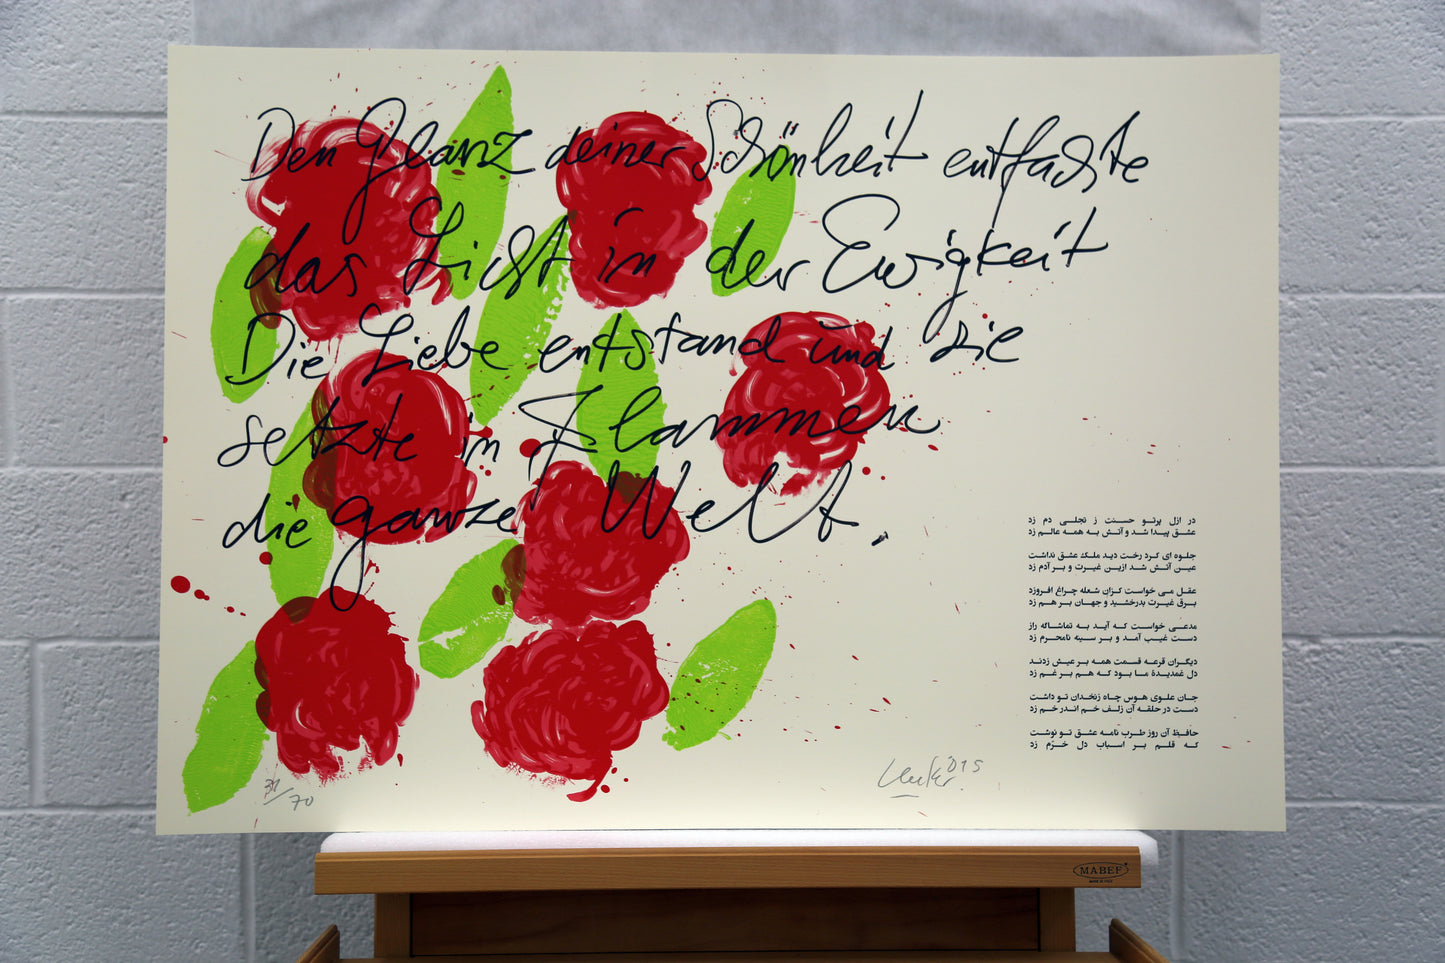 Den Glanz deiner Schönheit entfachte
das Licht in der Ewigkeit
Die Liebe entstand und sie
setzte in Flammen
die ganze Welt.
در ازل پرتو حسنت ز تجلی دم زد
عشق پیدا شد و آتش به همه عالم زد
جلوه ای کرد رخت دید ملک عشق نداشت
عین آتش شد ازین غیرت و بر آدم زد
عقل می خواست کزان شعله چراغ افروزد
برق غیرت بدرخشید و جهان بر هم زد
مدعی خواست که آید به تماشاگه راز
دست غیب آمد و بر سینه نامحرم زد
دیگران قرعه قسمت همه بر عیش زدند
دل غمدیدۀ ما بود که هم بر غم زد
جان علوی هوس چاه زنخدان تو داشت
دست در حلقه آن زلف خم اندر خم زد
حافظ آن روز طرب نامه عشق تو نوشت
که قلم بر اسباب دل خرّم زد
31/70
Uecker 015
MABEF
MADE IN ITALY